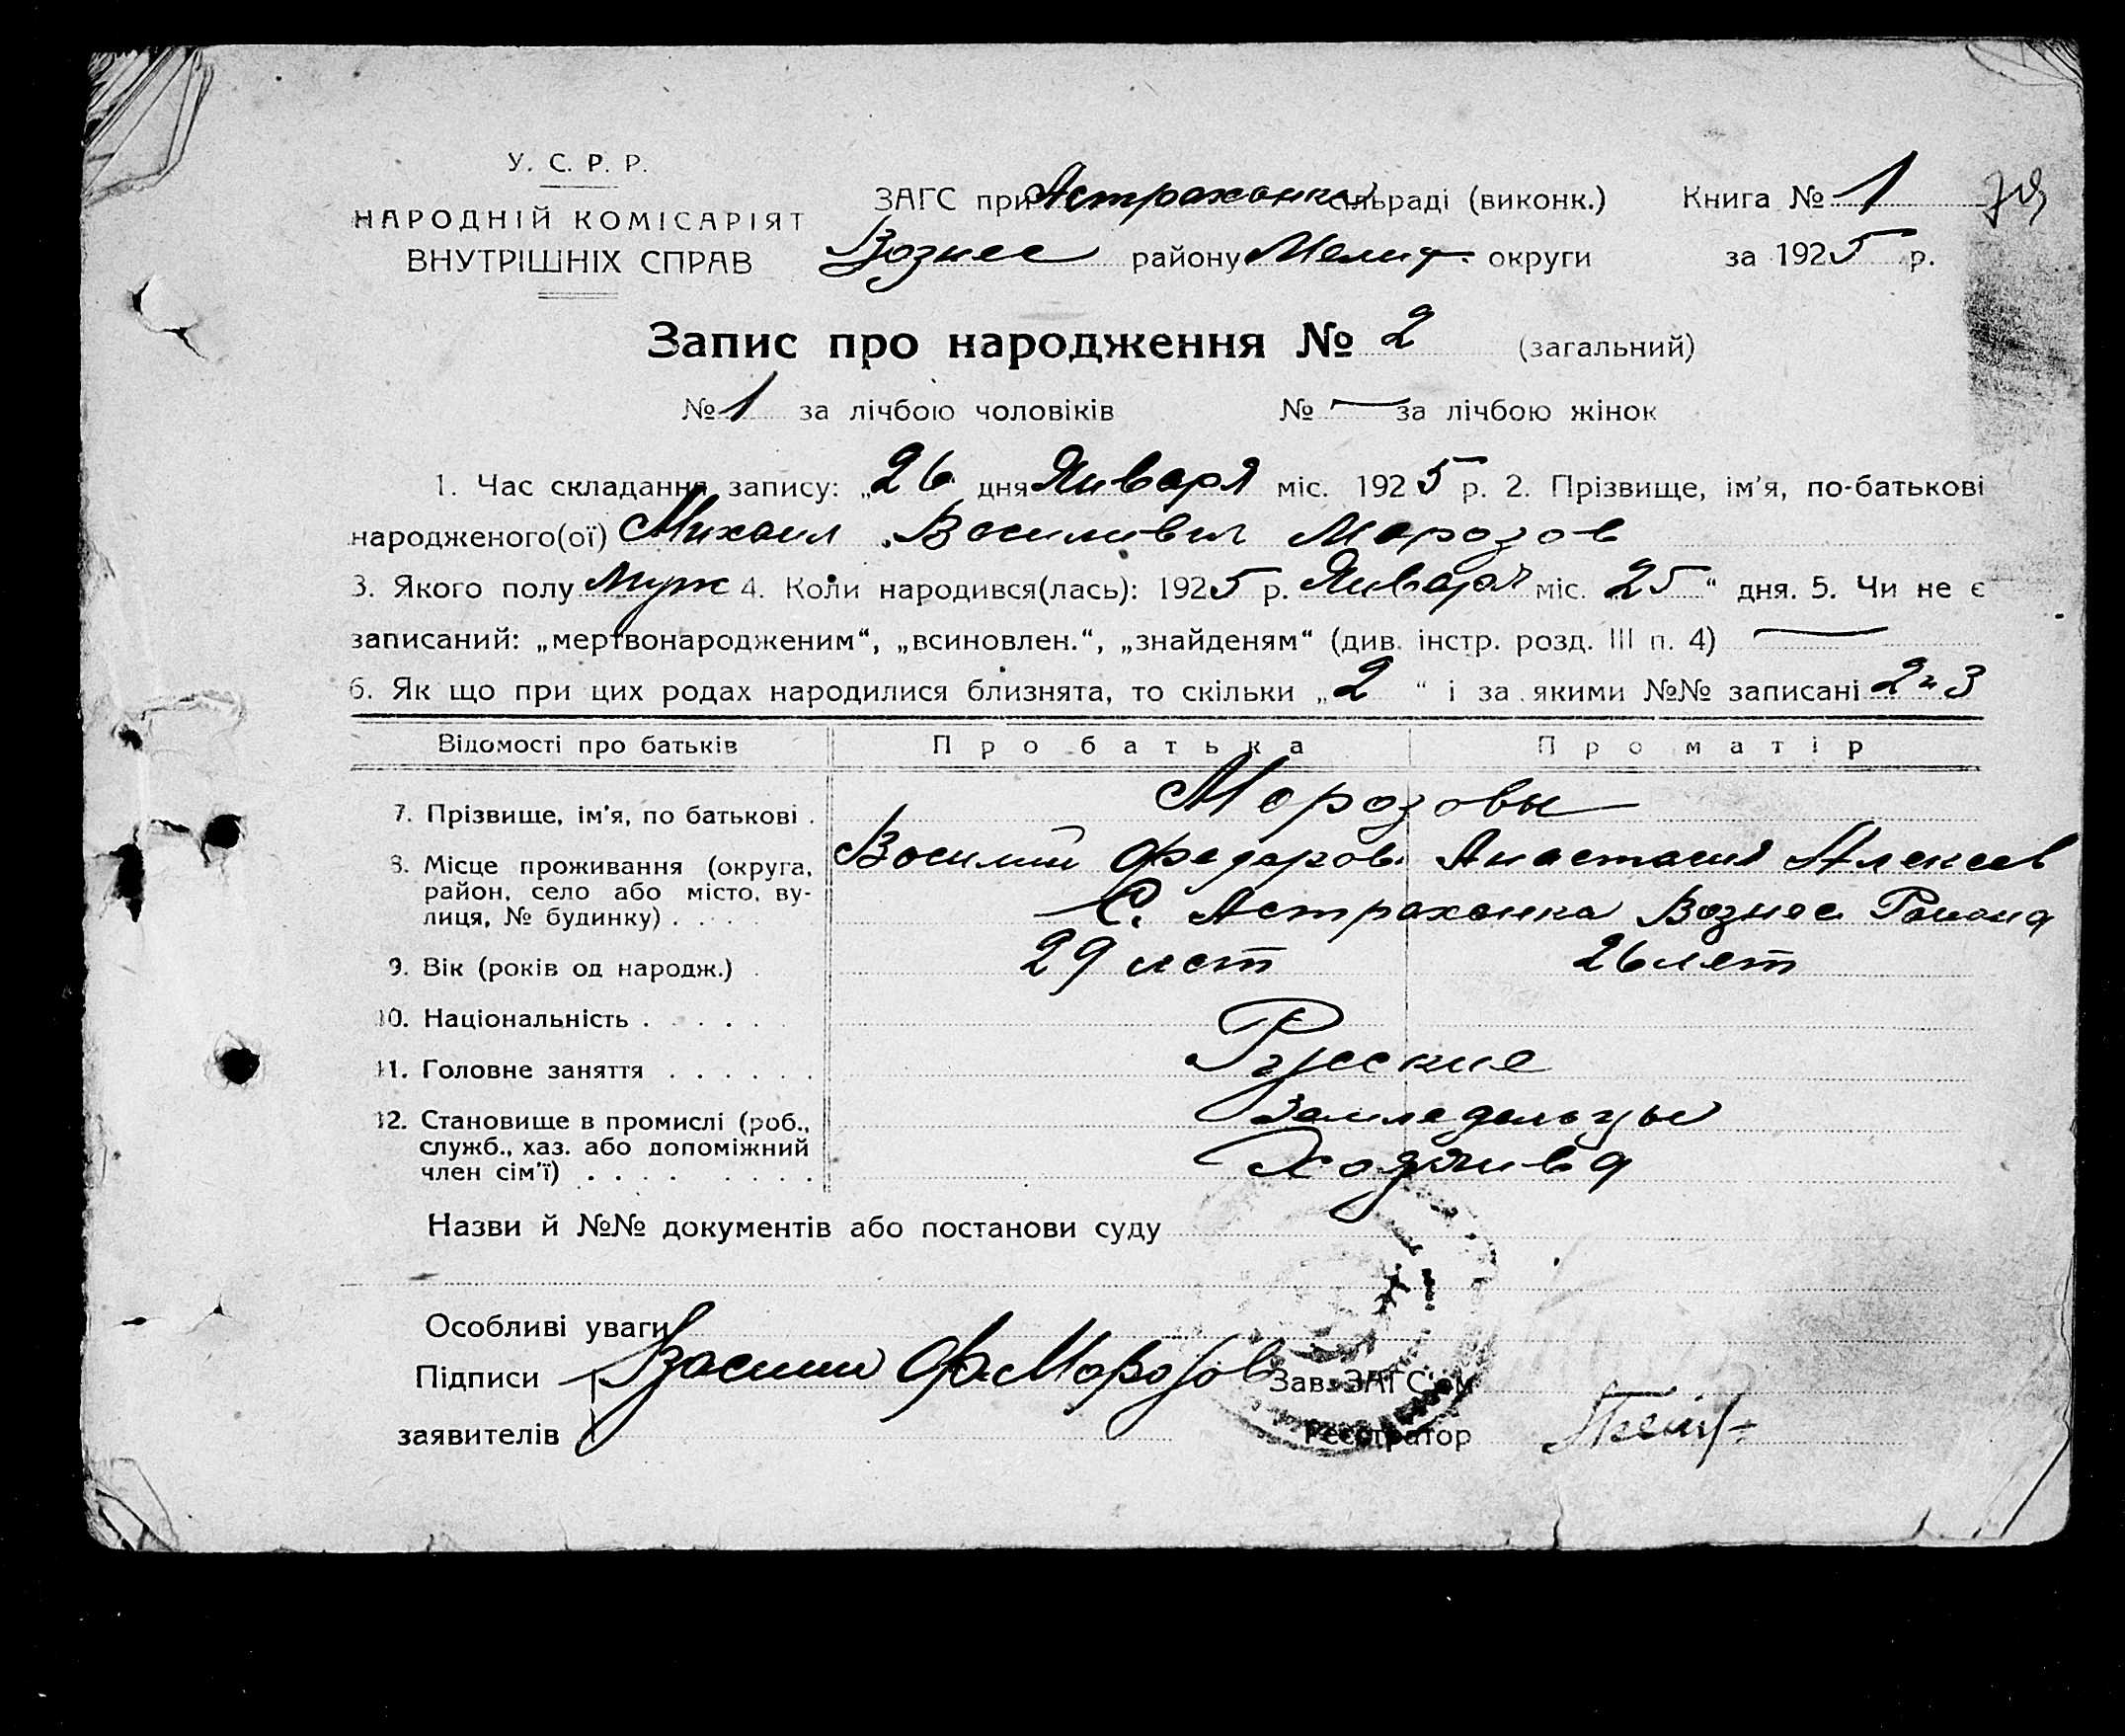 У. С. Р. Р.
НАРОДНІЙ КОМІСАРІЯТ
ВНУТРІШНІХ СПРАВ
ЗАГС при Астраханка сільраді (виконк.) Книга № 1
Вознес району Мелит. округи за 1925 р.
Запис про народження № 2 (загальний)
№ 1 за лічбою чоловіків № — за лічбою жінок
1. Час складання запису: „26 дня Января міс. 1925 р. 2. Прізвище, ім'я, по-батькові
народженого(ої) Михаил Василивич Марозов
3. Якого полу Муж 4. Коли народився(лась): 1925 р. Января міс. 25 “ дня. 5. Чи не є
записаний: „мертвонародженим“, „всиновлен.“, „знайденям“ (див. інстр. розд. III п. 4) —
6. Як що при цих родах народилися близнята, то скільки „2 “ і за якими №№ записані 2 и 3
Відомості про батьків Про батька Про матір
Морозовы
7. Прізвище, ім'я, по батькові .
Василий Федоров. Анастасия Алексев
8. Місце проживання (округа,
район, село або місто, ву-
лиця, № будинку) . . . .
С. Астраханка Вознес Района
9. Вік (років од народж.) . 29 лет 26 лет
10. Національність . . . . . .
Русские
11. Головне заняття . . . . . .
Земледельцы
12. Становище в промислі (роб.,
служб., хаз. або допоміжний
член сім'ї) . . . . . . . .
Хозяива
Назви й №№ документів або постанови суду
Особливі уваги
Підписи Василий Ф. Морозов Зав. ЗАГС'ом
заявителів Реєстратор